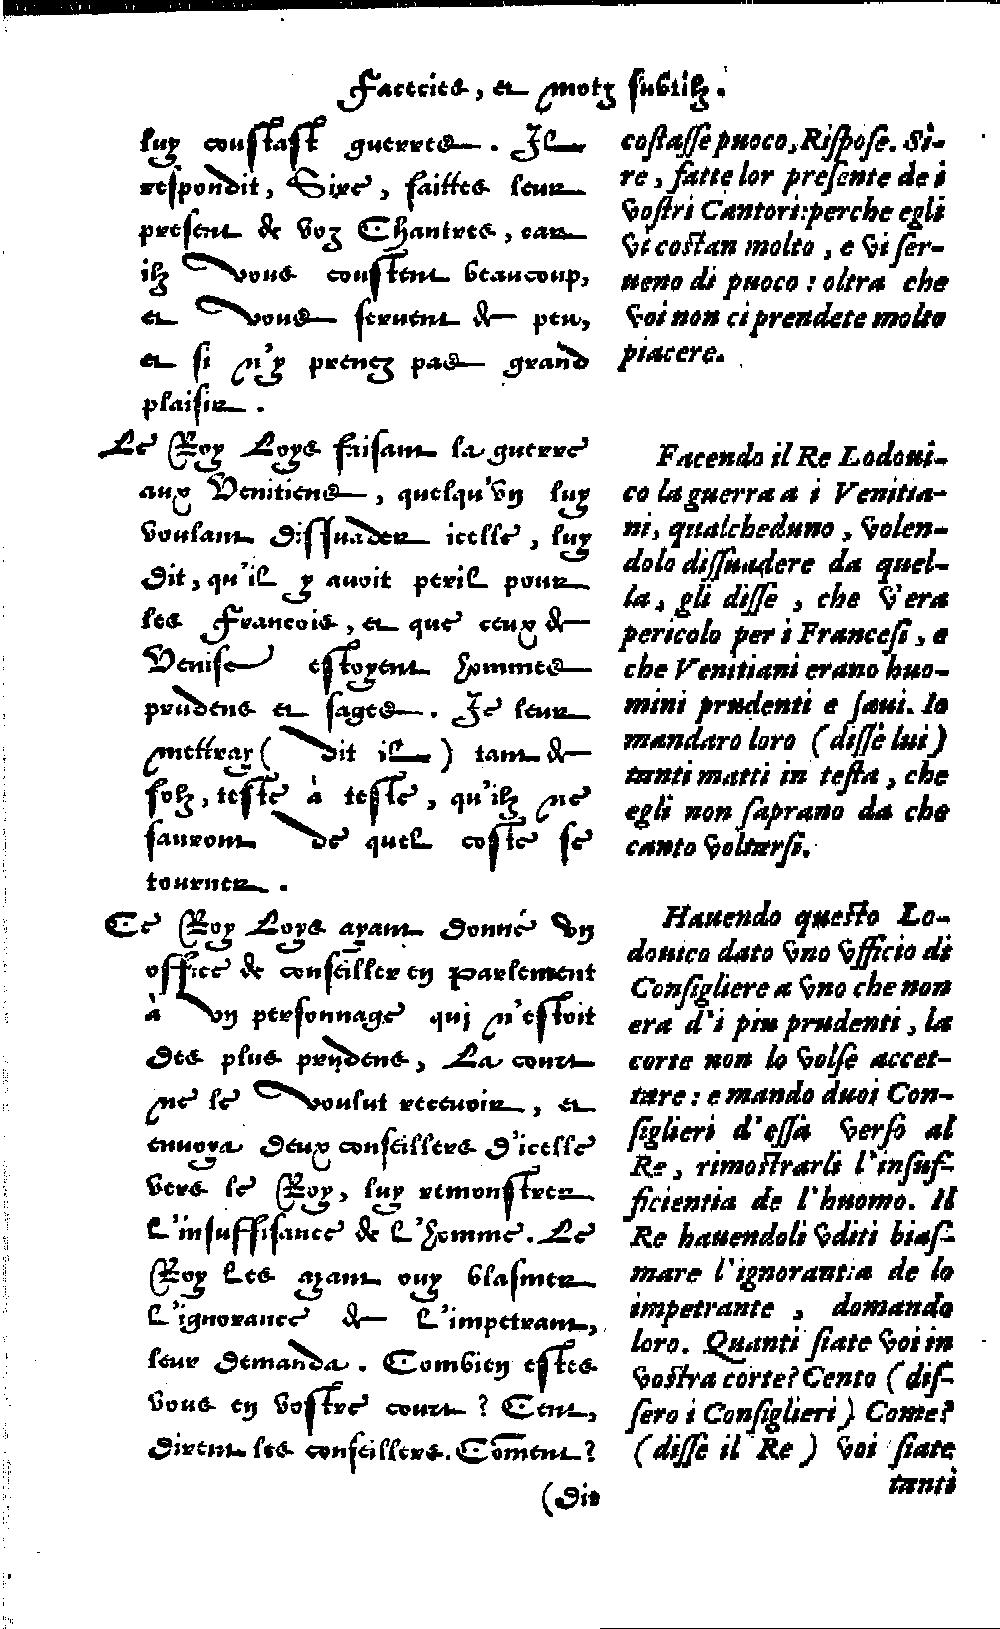 Faceties, et motz subtilz.
luy coustast guerres. Il
respondit, Sire, faittes leur
present de voz Chantres, car
ilz vous coustent beaucoup,
et vous seruent de peu,
et si n'y prenez pas grand
plaisir.
Le Roy Loys faisant la guerre
aux Venitiens, quelqu'vn luy
voulant dissuader icelle, luy
dit, qu'il y auoit peril pour
les Francois, et que ceux de
Venise estoyent hommes
prudens et sages. Ie leur
mettray (dit il) tant de
folz, teste à teste, qu'ilz ne
sauront de quel coste se
tourner.
Ce Roy Loys ayant donné vn
office de conseiller en parlement
à vn personnage qui n'estoit
des plus prudens, La court
ne le voulut receuoir, et
enuoya deux conseillers d'icelle
vers le Roy, luy remonstrer
l'insuffisance de l'homme. Le
Roy les ayant ouy blasmer
l'ignorance de l'impetrant,
leur demanda. Combien estes
vous en vostre court? Cent,
dirent les conseillers. Cõment?
(dit
costasse puoco, Rispose. Si-
re, fatte lor presente de i
vostri Cantori: perche egli
vi costan molto, e vi ser-
ueno di puoco: oltra che
voi non ci prendete molto
piacere.
Facendo il Re Lodoui-
co la guerra a i Venitia-
ni, qualcheduno, volen-
dolo dissuadere da quel-
la, gli disse, che v'era
pericolo per i Francesi, e
che Venitiani erano huo-
mini prudenti e saui. Io
mandaro loro (disse lui)
tanti matti in testa, che
egli non saprano da che
canto voltarsi.
Hauendo questo Lo-
douico dato vno vfficio di
Consigliere a vno che non
era d'i piu prudenti, la
corte non lo volse accet-
tare: e mando duoi Con-
siglieri d'essa verso al
Re, rimostrarli l'insuf-
ficientia de l'huomo. Il
Re hauendoli vditi biaf-
mare l'ignorantia de lo
impetrante, domando
loro. Quanti siate voi in
vostra corte? Cento (dis-
sero i Consiglieri) Come?
(disse il Re) voi siate
tanti